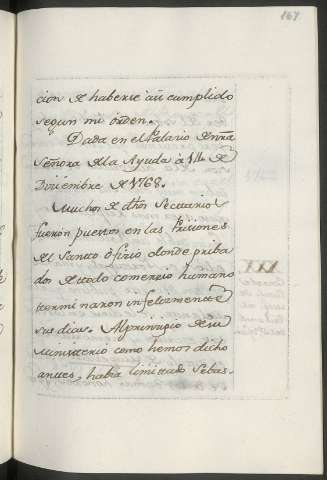 167
cion de haberse asi cumplido
segun mi órden.
Dada en el Palacio de nrã
Señora de la Ayuda à 14 de
Diciembre de 1768.
Muchos de dhos Sectarios
fueron puestos en las Prisiones
del Santo oficio donde priba
dos de todo comercio humano
terminaron infelizmente
sus dias. Al principio de su
ministerio como hemos dicho
antes, habia limitado Sebas-
XXX